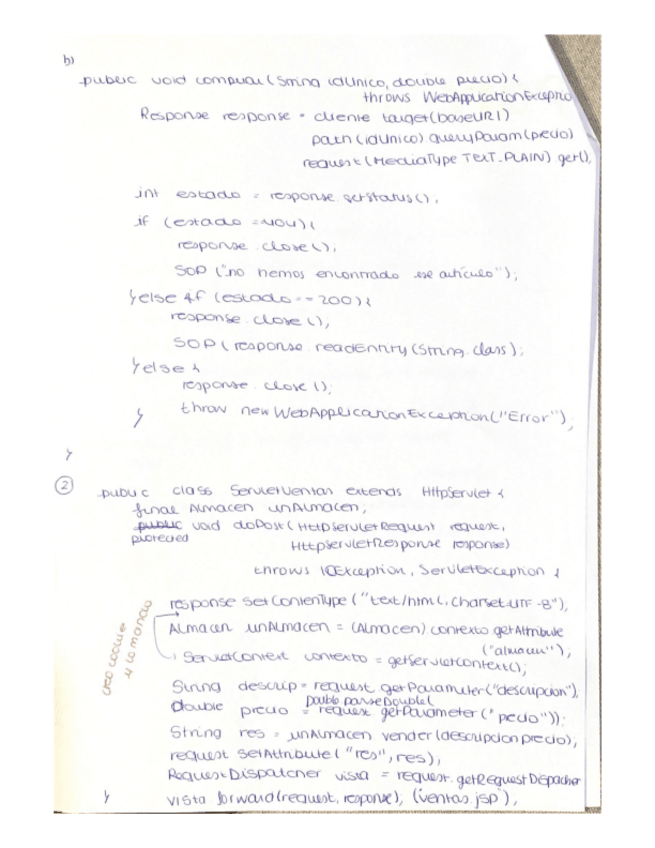 b)
public void comprar(String idUnico, double precio) {
throws WebApplicationExceptio
Response response = cliente target(baseURI)
path(idUnico) queryParam(pecio)
request(MediaType TEXT_PLAIN) get(),
int estado = response.getStatus(),
if (estado =404){
response close(),
SOP ("no hemos encontrado ese artículo");
}else if (estado == 200){
response.close();
SOP(response readEntity(String.class);
}else {
response.close();
throw new WebApplicationException("Error");
}
}
2 public class ServletVentas extends HttpServlet {
final Almacen unAlmacen;
public void doPost(HttpServletRequest request,
protected
HttpServletResponse response)
throws IOException, ServletException {
response setContentType ("text/html, charset-UTF-8"),
Almacen unAlmacen = (Almacen) contexto getAttribute
("almacen"),
ServletContext contexto = getServletContext();
creo cookie
y lo mando
String descrip = request getParameter("descripcion"),
Double parseDouble(
double precio = request getParameter("pecio"));
String res = unAlmacen vender(descripcion precio),
request setAttribute ("res", res),
RequestDispatcher vista = request.getRequestDispacher
vista forward(request, response), (ventas.jsp"),
}